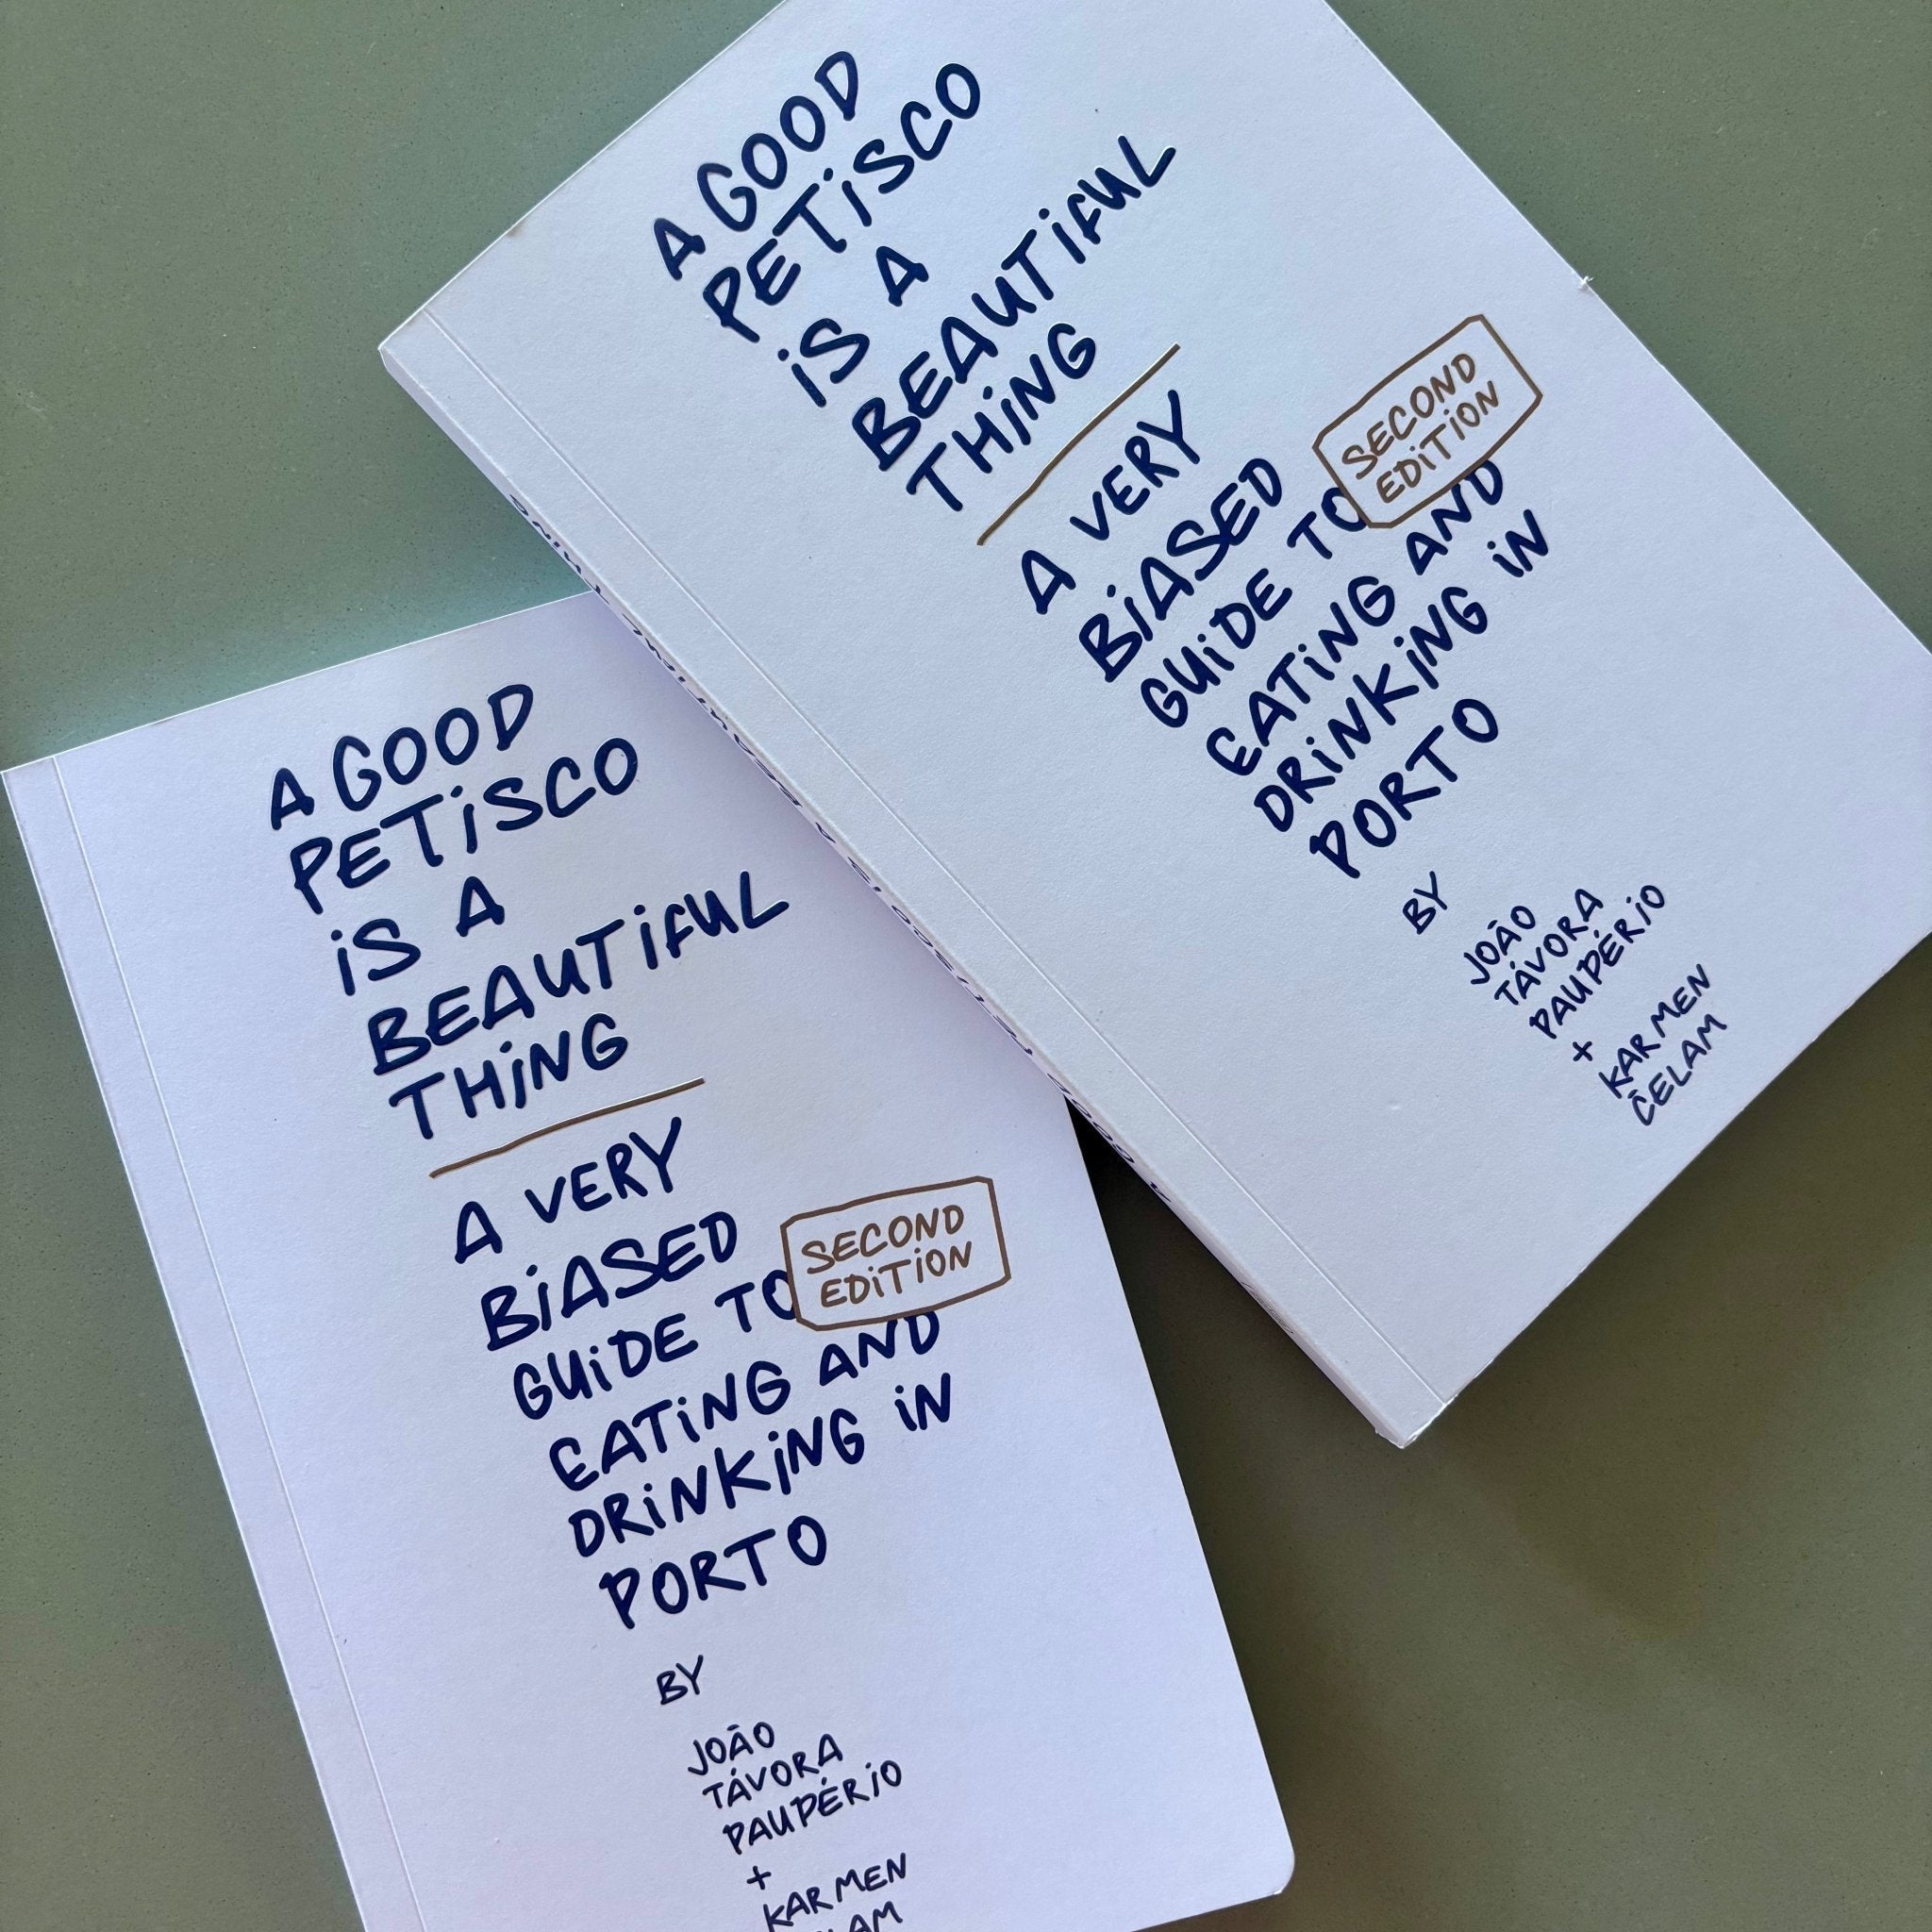 A GOOD
PETISCO
IS A
BEAUTIFUL
THING
A VERY
BIASED
GUIDE TO
EATING AND
DRINKING IN
PORTO
SECOND
EDITION
BY
JOÃO
TÁVORA
PAUPÉRIO
+
KARMEN
ČELAM
A GOOD
PETISCO
IS A
BEAUTIFUL
THING
A VERY
BIASED
GUIDE TO
EATING AND
DRINKING IN
PORTO
SECOND
EDITION
BY
JOÃO
TÁVORA
PAUPÉRIO
+
KARMEN